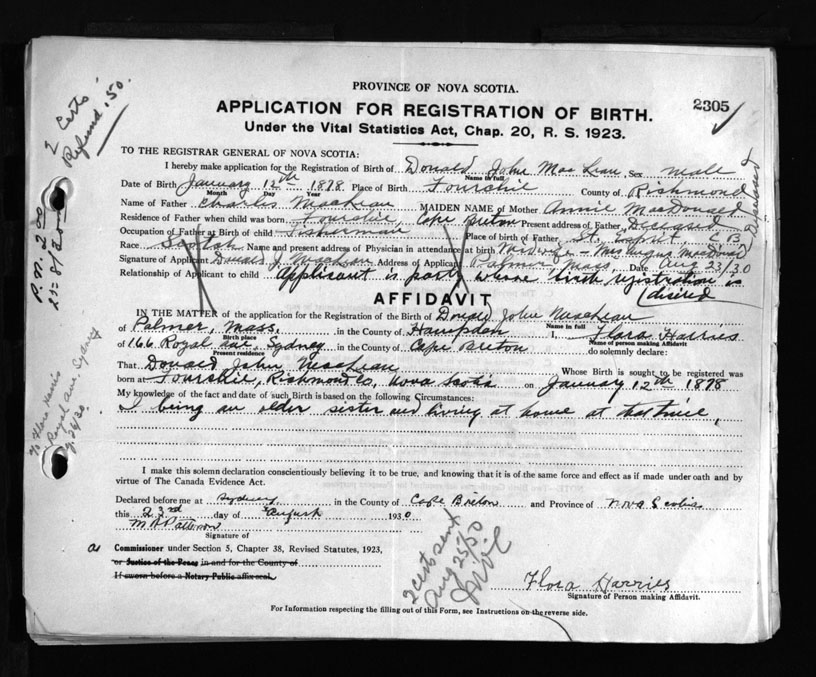 PROVINCE OF NOVA SCOTIA.
2305
APPLICATION FOR REGISTRATION OF BIRTH.
Under the Vital Statistics Act, Chap. 20, R. S. 1923.
2 Certs
Refund .50.
TO THE REGISTRAR GENERAL OF NOVA SCOTIA:
I hereby make application for the Registration of Birth of Donald John MacLean Sex male
Name in full
Date of Birth January 12th 1878 Place of Birth Fourchie County of Richmond
Month Day Year
Name of Father Charles MacLean MAIDEN NAME of Mother Annie MacDonald
Residence of Father when child was born Fourchie, Cape Breton Present address of Father Deceased
Deceased
Occupation of Father at Birth of child Fisherman Place of birth of Father St. Esprit C B
Race Scotch Name and present address of Physician in attendance at birth Midwife - Mrs Angus MacDonald
Signature of Applicant Donald J. MacLean Address of Applicant Palmer Mass, Date Aug 23/30
Relationship of Applicant to child Applicant is party whose birth registration is
desired
P.N. 2.00
AFFIDAVIT
IN THE MATTER of the application for the Registration of the Birth of Donald John MacLean
Name in full
of Palmer, Mass. in the County of Hampden I, Flora Harries
Birth place
Name of person making Affidavit
of 166 Royal Ave, Sydney in the County of Cape Breton do solemnly declare:
Present residence
That Donald John MacLean Whose Birth is sought to be registered was
born at Fourchie, Richmond Co, Nova Scotia on January 12th 1878
My knowledge of the fact and date of such Birth is based on the following Circumstances:
I being an older sister and living at home at that time,
Flora Harris
Royal Ave Sydney
I make this solemn declaration conscientiously believing it to be true, and knowing that it is of the same force and effect as if made under oath and by
virtue of The Canada Evidence Act.
Declared before me at Sydney in the County of Cape Breton and Province of Nova Scotia
this 23rd day of August 1930
Signature of
a Commissioner under Section 5, Chapter 38, Revised Statutes, 1923,
or Justice of the Peace in and for the County of
If sworn before a Notary Public affix seal.
2 certs sent
Aug 25/30
Flora Harries
Signature of Person making Affidavit.
For Information respecting the filling out of this Form, see Instructions on the reverse side.